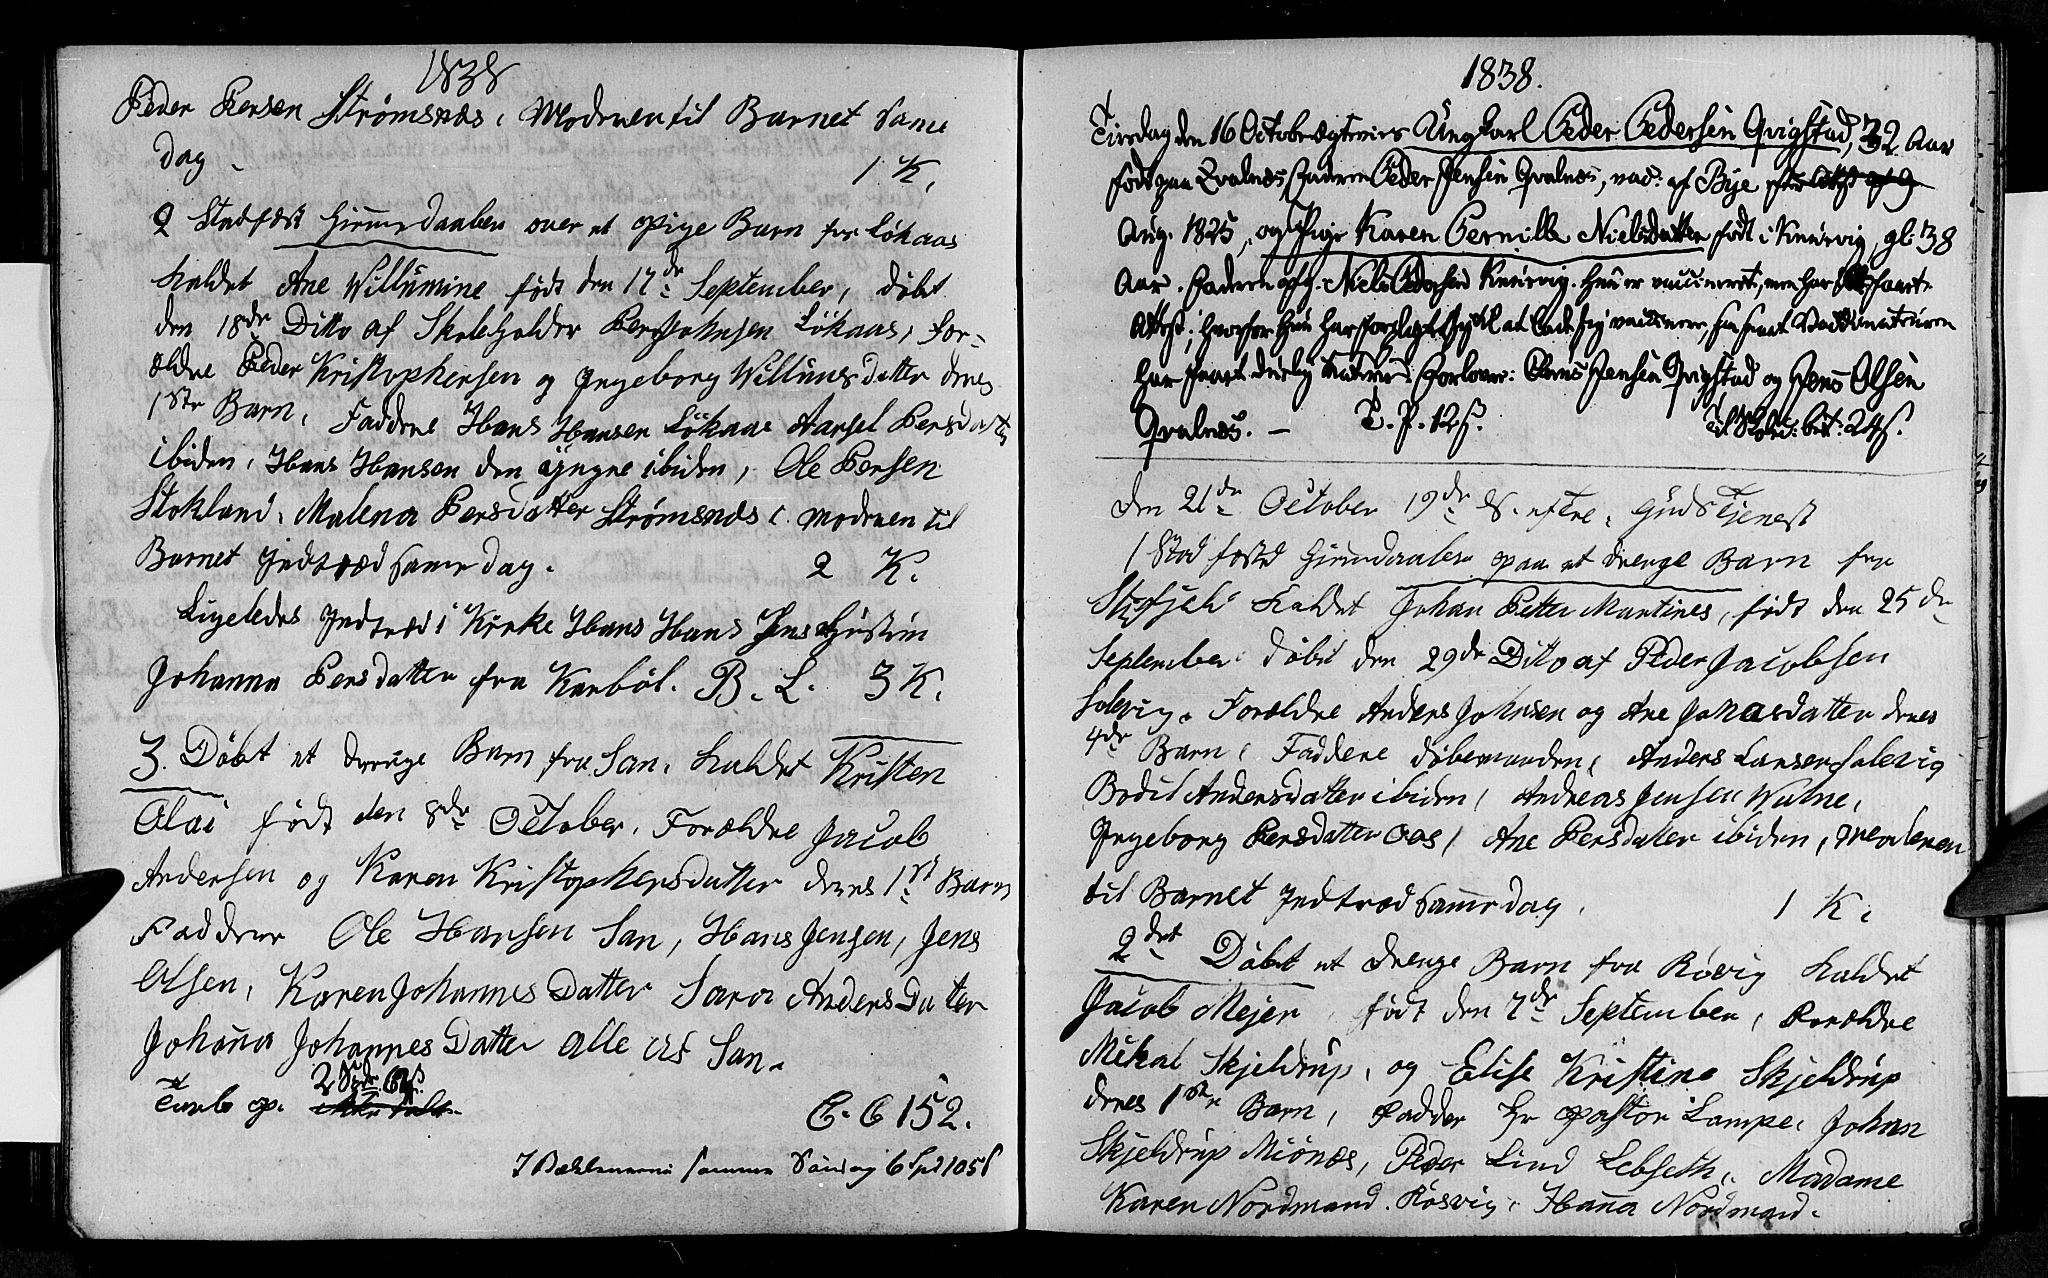 1838
Peder Persen Strømsnæs, Moderen til Barnet Same
dag - 1 K.
2 Stadfæst Hiemedaaben over et Pige Barn fra Løkaas
kaldet Ane Willumine født den 17de September, døbt
den 18de Ditto af Skoleholder Per Johnsen Løkaas, For-
ældre Peder Kristophersen og Ingeborg Willumsdatter deres
1ste Barn, Faddere Hans Hansen Løkaas Persdatter
ibiden, Hans Hansen den yngre ibiden, Ole Persen
Stokland, Malena Persdatter Strømsnæs, Moderen til
Barnet Indtræd Same dag. 2 K.
Ligeledes Indtræd i Kirke Hans Hans Jens Hustru
Johanna Persdatter fra Karbøl. B. L. 3 K.
3. Døbt et drenge Barn fra San, kaldet Kristen
Olai født den 8de October, Forældre Jacob
Andersen og Karen Kristophersdatter deres 1st Barn
Faddere Ole Hansen San, Hans Jensen, Jens
Olsen, Karen Johannes Datter Sara Anders Datter
Johana Johannes Datter alle af San.
2
Tavle p.
C. C 152.
I samme Søndag 6 Spd 105 ß
1838.
Tirsdag den 16 October Ungkarl Peder Pedersen Qvigstad, 32 Aar
født paa Qvalnæs, Faderen Peder Jensen Qvalnæs, vac: af Bye
Aug. 1825, og Pige Karen Pernille Nielsdatter født i Knürvig, gl: 38
Aar. Faderen Niels Pedersen Knürvig. Hun er vaccineret, men har faaet
Attest, hvorfor Hun har at lade sig vaccinere,
har faaet Forlovere: Jensen Qvigstad og Jens Olsen
Qvalnæs. - T. P. 12ß. Til 24ß.
Den 21de October 19de S. eftr. Guds Tjenest
1 Stadfæstd Hiemedaaben paa et drenge Barn fra
kaldet Johan Petter Martines, født den 25de
September døbt den 29de Ditto af Peder Jacobsen
Solvig. Forældre Anders Johnsen og Ane Johasdatter deres
4de Barn, Faddere døbemanden, Anders Larsen Solvig
Bodil Andersdatter ibiden, Andreas Jensen
Ingeborg Persdatter Aas, Ane Persdatter ibiden, Moderen
til Barnet Indtræd Same dag. 1 K.
2det Døbt et drenge Barn fra Røvig kaldet
Jacob Mejer, født den 7de September, Forældre
Mikal Skjeldrup, og Elise Kristine Skjeldrup
deres 1ste Barn, Fadder Hr Pastor Lampe, Johan
Skjeldrup Miønæs, Peder Lind Lebseth, Madame
Karen Nordmand. Røsvig, Hana Nordmand.